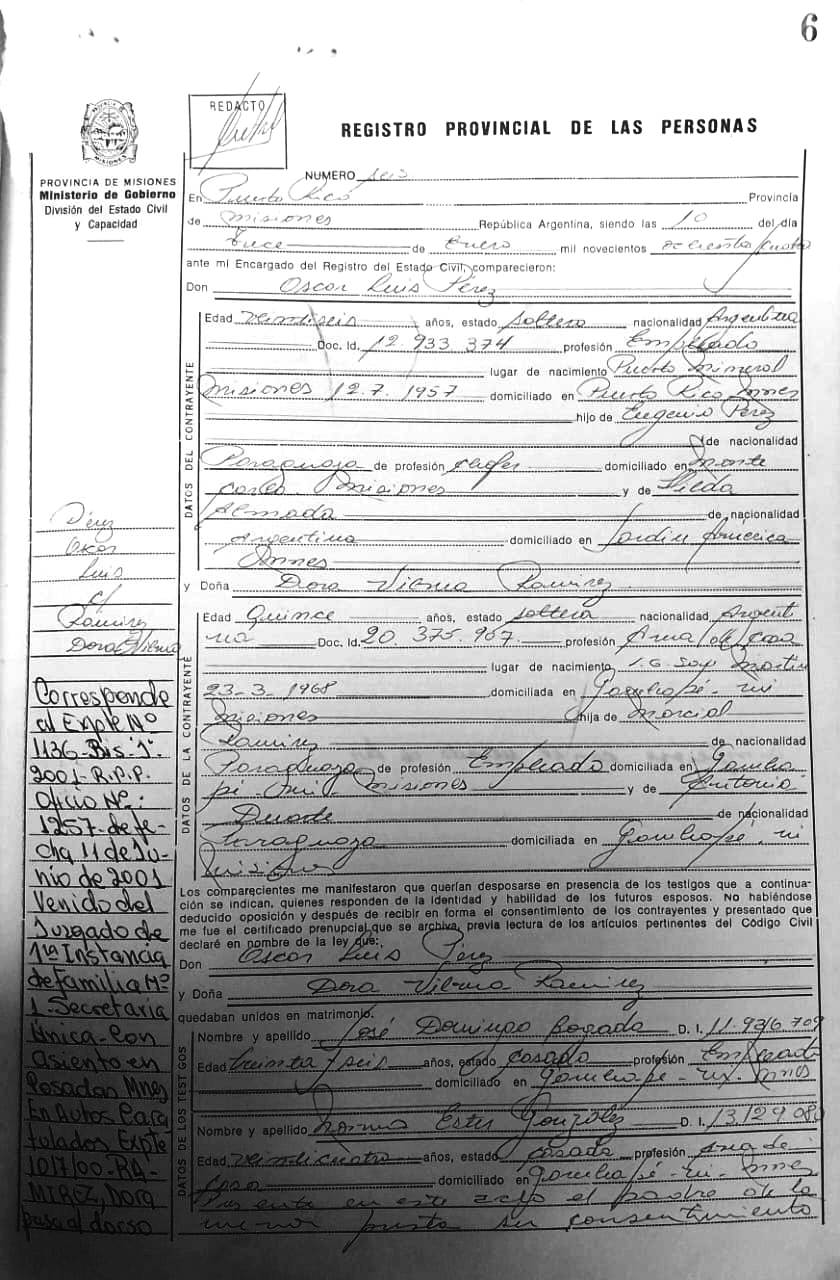 6
REDACTO
REGISTRO PROVINCIAL DE LAS PERSONAS
PROVINCIA DE MISIONES
Ministerio de Gobierno
División del Estado Civil
y Capacidad
NUMERO seis
En Puerto Rico Provincia
de Misiones República Argentina, siendo las 10 del día
de Enero mil novecientos ochenta/cuatro
ante mi Encargado del Registro del Estado Civil, comparecieron:
Don Oscar Luis Pérez
DATOS DEL CONTRAYENTE
Edad veintiseis años, estado soltero nacionalidad Argentina
Doc. Id. 12.933.374 profesión Empleado
lugar de nacimiento Puerto Mineral
Misiones 12.7.1957 domiciliado en Puerto Rico Mnes
hijo de Eugenio Pérez
de nacionalidad
Paraguaya de profesión chofer domiciliado en Monte
carlo Misiones y de
Almada de nacionalidad
Argentina domiciliado en Jardín América
Mnes
y Doña Dora Vilma Ramirez
DATOS DE LA CONTRAYENTE
Edad Quince años, estado soltera nacionalidad Argenti
na Doc. Id. 20.375.967 profesión Ama/de/casa
lugar de nacimiento L.G. San Martin
23-3-1968 domiciliada en Garuhapé-mi
Misiones hija de Marcial
Ramirez de nacionalidad
Paraguaya de profesión Empleado domiciliada en Garuha
pé mi Misiones y de
Duarte de nacionalidad
Paraguaya domiciliada en Garuhapé-mi
Misiones
Los comparecientes me manifestaron que querían desposarse en presencia de los testigos que a continua-
ción se indican, quienes responden de la identidad y habilidad de los futuros esposos. No habiéndose
deducido oposición y después de recibir en forma el consentimiento de los contrayentes y presentado que
me fue el certificado prenupcial que se archiva, previa lectura de los artículos pertinentes del Código Civil
declaré en nombre de la ley que:
Don Oscar Luis Pérez
y Doña Dora Vilma Ramirez
quedaban unidos en matrimonio.
DATOS DE LOS TESTIGOS
Nombre y apellido José Domingo Bogado D. I. 11.936.709
Edad treinta/seis años, estado casado profesión Empleado
domiciliado en Garuhapé-mi. Mnes
Nombre y apellido Norma Ester González D. I. 13.129.080
Edad veinticuatro años, estado casada profesión Ama de
casa domiciliado en Garuhapé-mi-Mnes
Presente en este acto el padre de la
menor presta su consentimiento
Pérez
Oscar
Luis
c/
Ramirez
Dora Vilma
Corresponde
al Expte Nº
1136-Bis "J"
2001-R.P.P.
Oficio Nº:
1257-de fe-
cha 11 de Ju-
nio de 2001
Venido del
Juzgado de
1ra Instancia
de Familia Nº
1-Secretaría
Única-Con
asiento en
Posadas Mnes
En Autos Cara
tulados Expte
1017/00-RA-
MIREZ, Dora
pasa al dorso